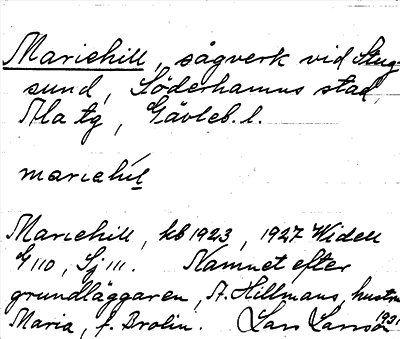 Mariehill, sågverk vid Stug-
sund, Söderhamns stad,
Ala tg, Gävleb. l.
mariehil
Mariehill, kb 1923, 1927 Widell
G 110, Sj 111. Namnet efter
grundläggaren, A. Hillmans, hustru
Maria, f. Brolin. Lars Larsson
1931